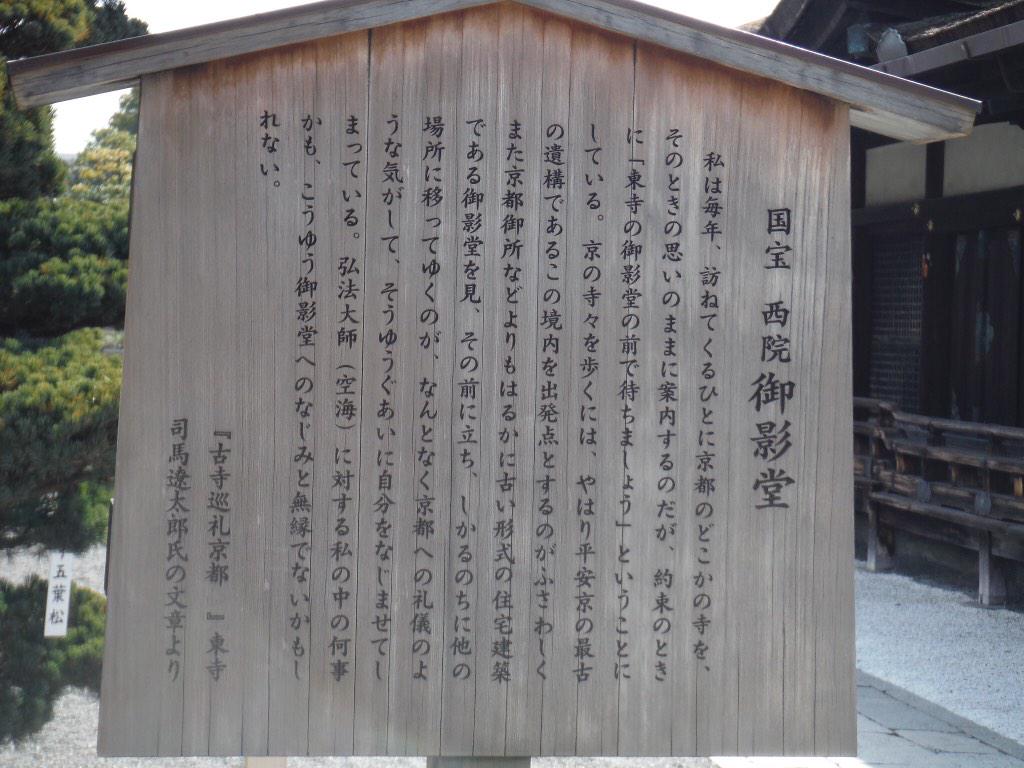 国宝 西院御影堂
私は毎年、訪ねてくるひとに京都のどこかの寺を、
そのときの思いのままに案内するのだが、約束のとき
に「東寺の御影堂の前で待ちましょう」ということに
している。京の寺々を歩くには、やはり平安京の最古
の遺構であるこの境内を出発点とするのがふさわしく
また京都御所などよりもはるかに古い形式の住宅建築
である御影堂を見、その前に立ち、しかるのちに他の
場所に移ってゆくのが、なんとなく京都への礼儀のよ
うな気がして、そうゆうぐあいに自分をなじませてし
まっている。弘法大師(空海)に対する私の中の何事
かも、こうゆう御影堂へのなじみと無縁でないかもし
れない。
『古寺巡礼京都 』東寺
司馬遼太郎氏の文章より
五葉松